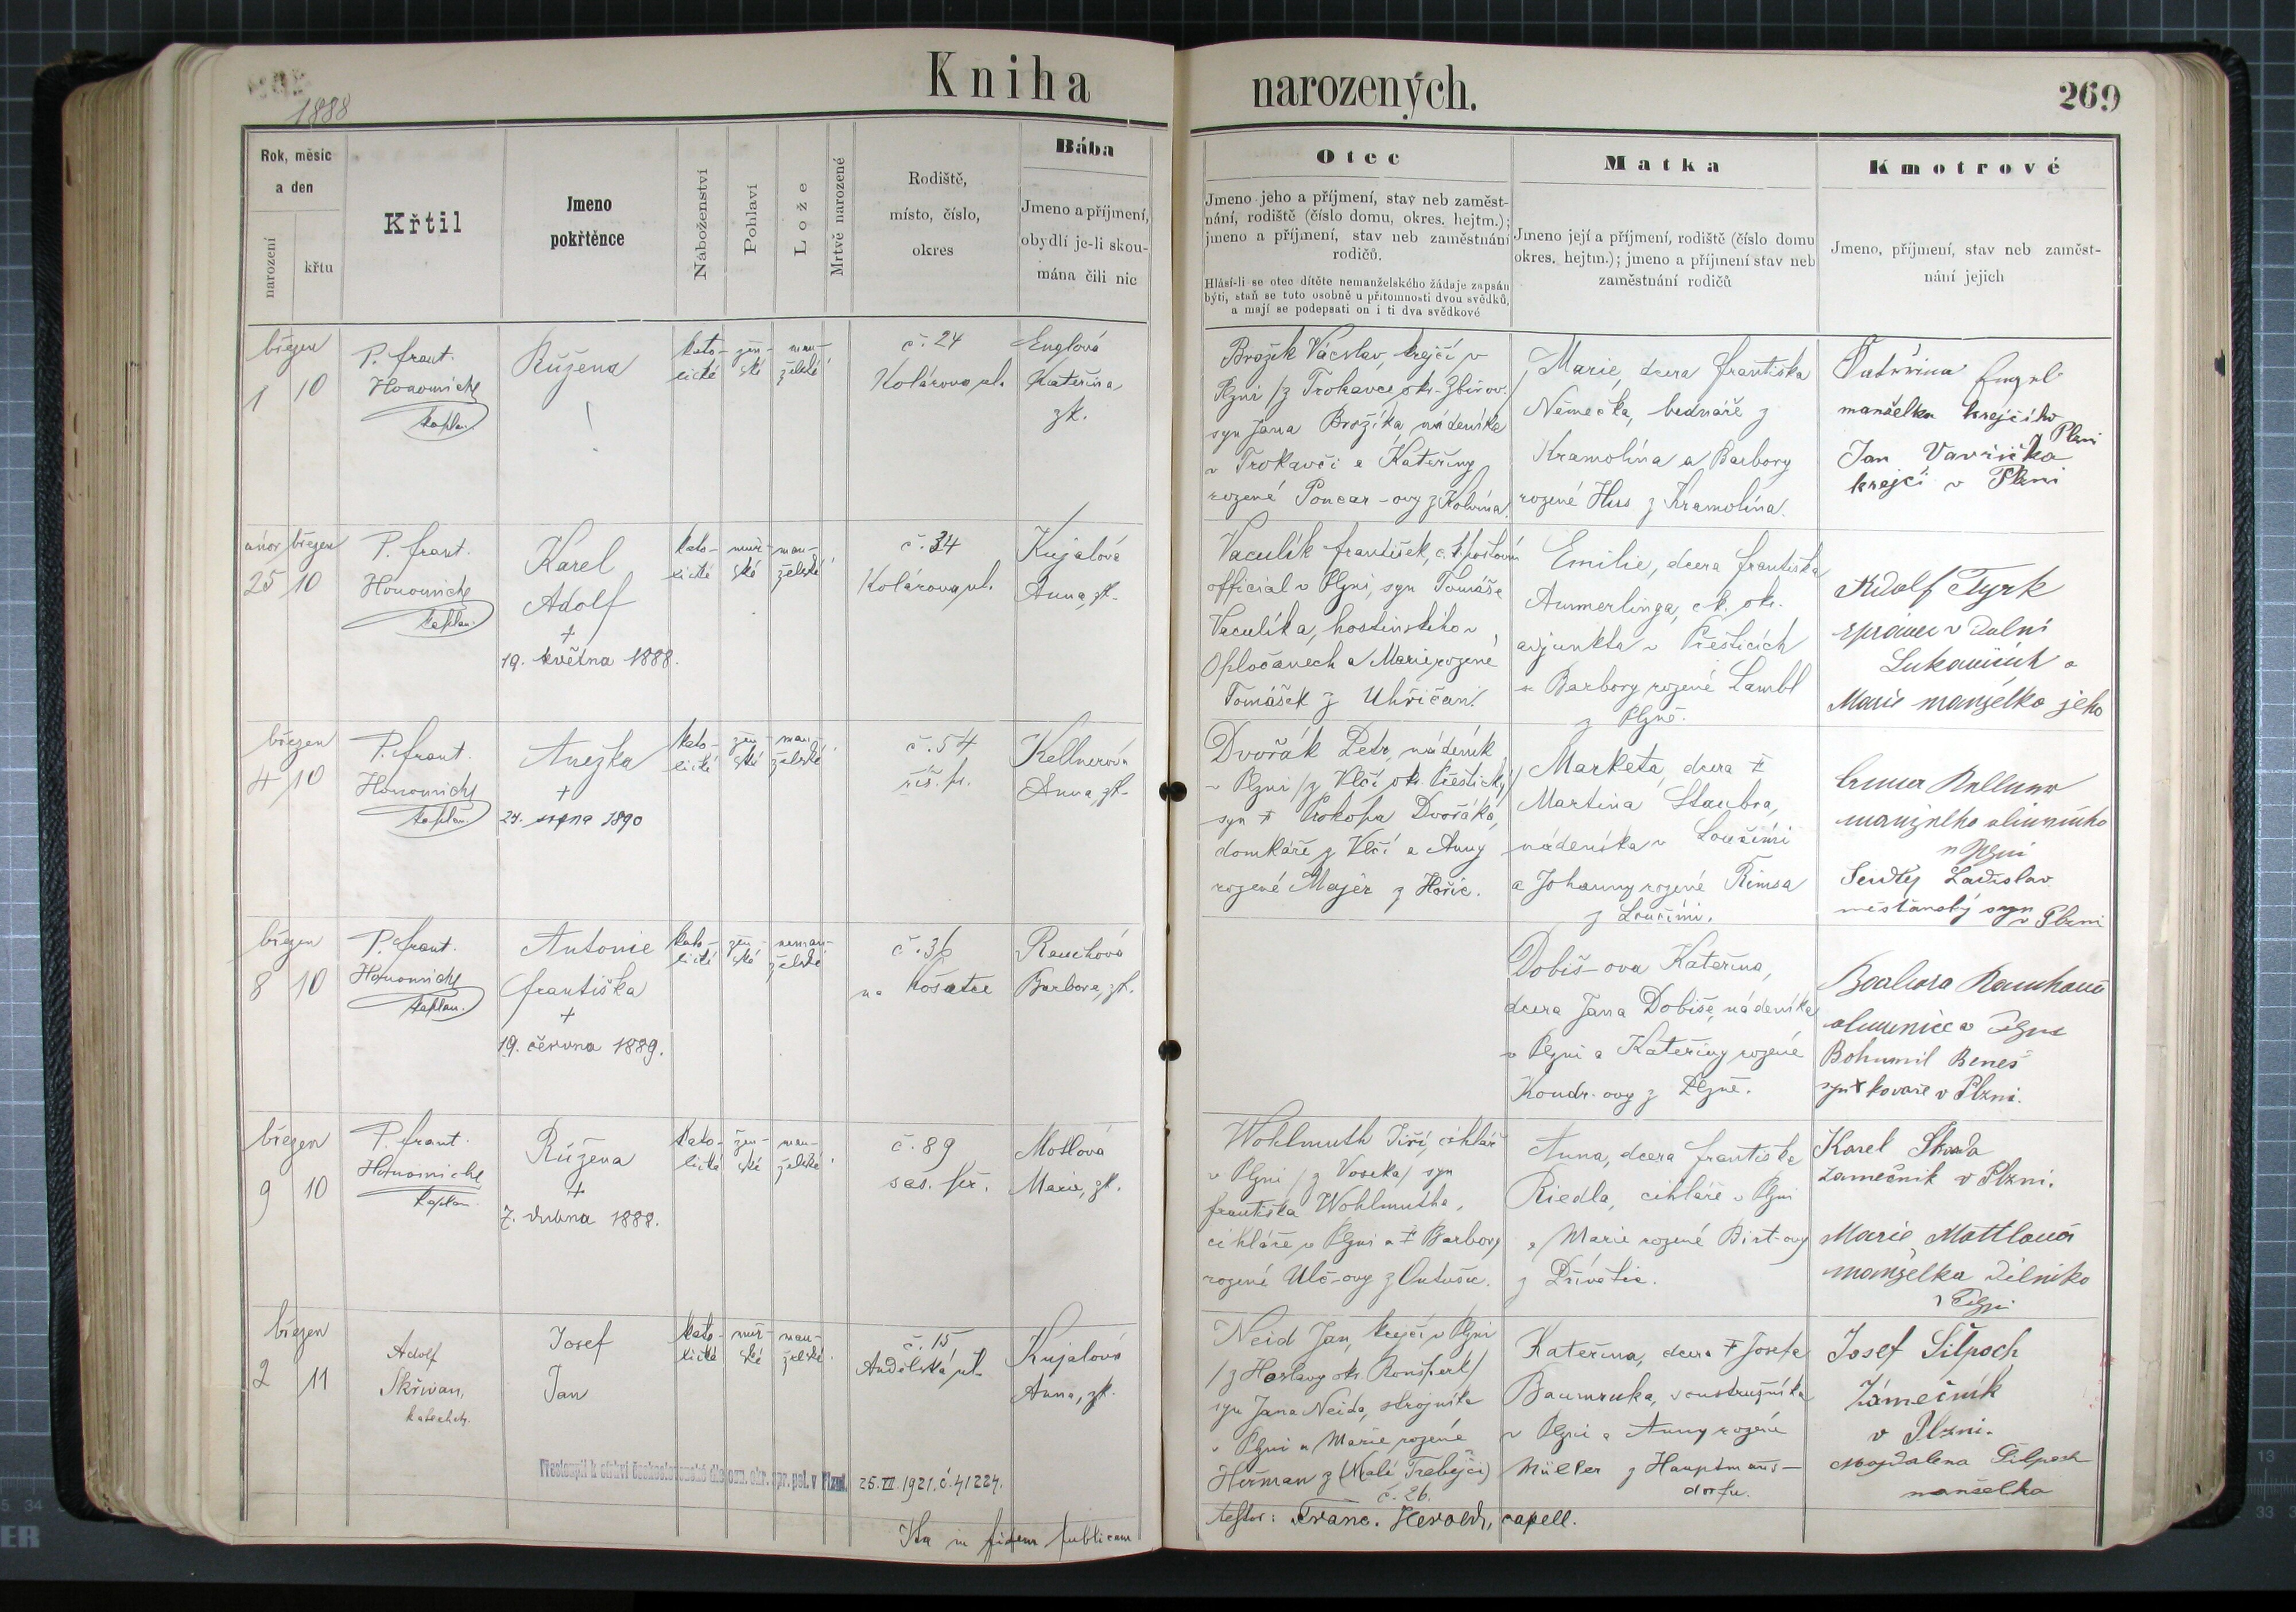 Kniha
narozených.
269
1888
Rok, měsíc
a den
narození
křtu
Křtil
Jmeno
pokřtěnce
Náboženství
Pohlaví
Lože
Mrtvě narozené
Rodiště,
místo, číslo,
okres
Bába
Jmeno a příjmení,
obydlí je-li skou-
mána čili nic
Otec
Jmeno jeho a příjmení, stav neb zaměst-
nání, rodiště (číslo domu, okres. hejtm.);
jmeno a příjmení, stav neb zaměstnání
rodičů.
Hlásí-li se otec dítěte nemanželského žádaje zapsán
býti, staň se toto osobně u přítomnosti dvou svědků,
a mají se podepsati on i ti dva svědkové
Matka
Jmeno její a příjmení, rodiště (číslo domu
okres. hejtm.); jmeno a příjmení stav neb
zaměstnání rodičů
Kmotrové
Jmeno, příjmení, stav neb zaměst-
nání jejich
březen
1 10
P. Frant.
kaplan.
Růžena
kato- žen- man-
lické ské želské
č. 24
Kolárova ul.
Englová
Kateřina
zk.
Brožík Václav, krejčí v
Plzni /z Trokavce okr. Zbirov./
syn Jana Brožíka, nádeníka
v Trokavci a Kateřiny
rozené Poncar-ovy z Kolvína.
Marie, dcera Františka
Němečka, bednáře z
Kramolína a Barbory
rozené Hus z Kramolína.
Engel
manželka krejčího
v Plzni
Jan Vavřička
krejčí v Plzni
únor březen
25 10
P. Frant.
kaplan.
Karel
Adolf
+
19. května 1888.
kato- muž- man-
lické ské želské
č. 34
Kolárova ul.
Kujalová
Anna, zk.
Vaculík František, c. k. poštovní
official v Plzni, syn Tomáše
Vaculíka, hostinského v
Opločanech a Marie rozené
Tomášek z Uhřičan.
Emilie, dcera Františka
Ammerlinga, c. k. okr.
adjunkta v Přešticích
a Barbory rozené Lambl
z Plzně.
Rudolf Tyrk
správce v Dolní
Lukavici a
Marie manželka jeho
březen
4 10
P. Frant.
kaplan.
Anežka
+
24. srpna 1890
kato- žen- man-
lické ské želské
č. 54
říš. př.
Kellnerová
Anna, zk.
Dvořák Petr, nádeník
v Plzni /z Vlčí okr. Přeštický/
syn † Prokopa Dvořáka,
domkáře z Vlčí a Anny
rozené Majer z Hořic.
Marketa, dcera †
Martina Staubra,
nádeníka v Loučimi
a Johanny rozené Rimsa
z Loučimi.
v Plzni
Ladislav
měšťanský syn
v Plzni
březen
8 10
P. Frant.
kaplan.
Antonie
Františka
+
19. června 1889.
kato- žen- neman-
lické ské želské
č. 36
na Košatce
Rauchová
Barbora, zk.
Dobiš-ova Kateřina,
dcera Jana Dobiše, nádeníka
v Plzni a Kateřiny rozené
Koudr-ovy z Plzně.
Barbora Rauchová
Bohumil Beneš
syn † kováře v Plzni.
březen
9 10
P. Frant.
kaplan.
Růžena
+
7. dubna 1888.
kato- žen- man-
lické ské želské
č. 89
sas. př.
Motlová
Marie, zk.
Wohlmuth Jiří, cihlář
v Plzni /z Voseka/ syn
Františka Wohlmutha,
cihláře v Plzni a † Barbory
rozené Ulč-ovy z
Anna, dcera Františka
Riedla, cihláře v Plzni
a Marie rozené
z Přívětic.
Karel
zámečník v Plzni.
Marie Mottlová
manželka dělníka
v Plzni
březen
2 11
Adolf
Skřivan,
katecheta.
Josef
Jan
kato- muž- man-
lické ské želské
č. 15
Andělská ul.
Kujalová
Anna, zk.
Neid Jan, krejčí v Plzni
/z Hostavy okr. Ronšperk/
syn Jana Neida, strojníka
v Plzni a Marie rozené
Heřman z (Malé Trebejčí)
č. 26.
Kateřina, dcera † Josefa
Baumruka, soustružníka
v Plzni a Anny rozené
Müller z Hauptmans-
dorfu.
Josef Šilpoch
zámečník
v Plzni.
Magdalena Šilpoch
manželka
Přestoupil k církvi československé dle ozn. okr. spr. pol. v Plzni.
25. VII. 1921. č. 41224.
Ita in fidem publicam
testor: Franc. Herold, capell.